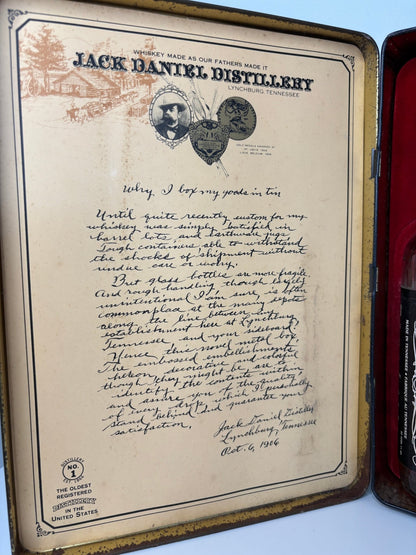 WHISKEY MADE AS OUR FATHERS MADE IT
JACK DANIEL DISTILLERY
LYNCHBURG TENNESSEE
GOLD MEDALS AWARDED AT
ST. LOUIS 1904
LIEGE BELGIUM 1905
Why I box my goods in tin
Until quite recently custom for my
whiskey was simply satisfied in
barrel lots and earthware jugs.
Tough containers able to withstand
the shocks of shipment without
undue care or worry.
But glass bottles are more fragile
And rough handling though largely
unintentional I am sure, is often
commonplace at the many stops
along the line between my
establishment here at Lynchburg,
Tennessee and your sideboard.
Hence, this novel metal box.
The embossed embellishments
hereon, decorative and colorful
though they might be are to
identify the contents within
and assure you of the quality
of every drop which I personally
stand behind and guarantee your
satisfaction,
Jack Daniel Distillery
Lynchburg, Tennessee
Oct. 6, 1906
DISTILLERY
NO.
1
THE OLDEST
REGISTERED
IN THE
UNITED STATES
MADE IN TENNESSEE